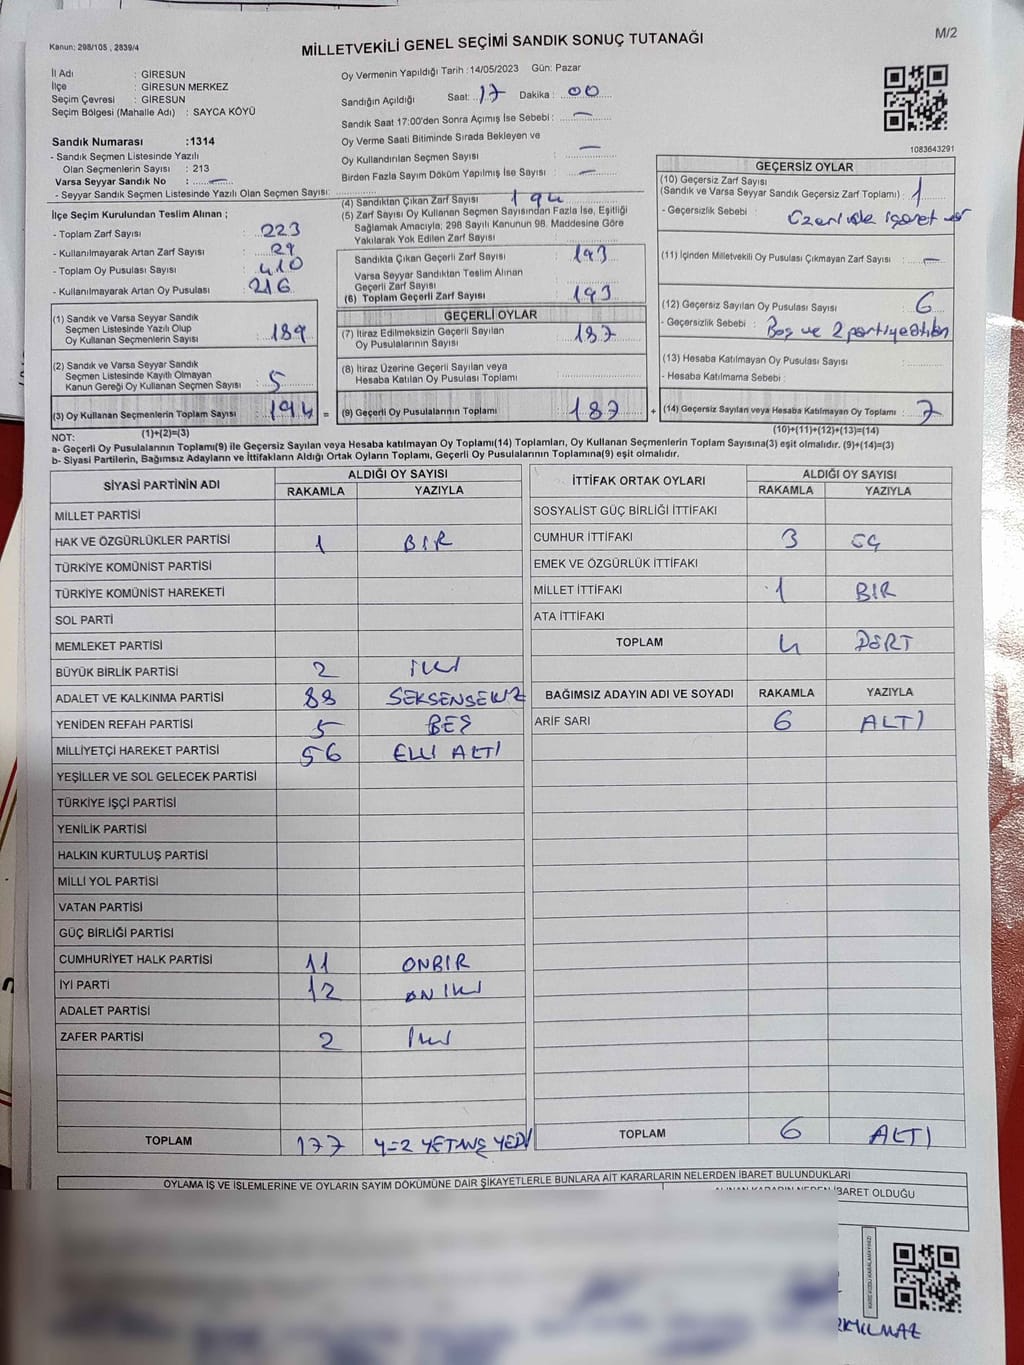 Kanun: 298/105 , 2839/4
MİLLETVEKİLİ GENEL SEÇİMİ SANDIK SONUÇ TUTANAĞI
M/2
İl Adı : GİRESUN
İlçe : GİRESUN MERKEZ
Seçim Çevresi : GİRESUN
Seçim Bölgesi (Mahalle Adı) : SAYCA KÖYÜ
Oy Vermenin Yapıldığı Tarih :14/05/2023 Gün: Pazar
Sandığın Açıldığı Saat: 17 Dakika : 00
Sandık Saat 17:00'den Sonra Açımış İse Sebebi : —
Oy Verme Saati Bitiminde Sırada Bekleyen ve
Oy Kullandırılan Seçmen Sayısı : —
Birden Fazla Sayım Döküm Yapılmış İse Sayısı : —
1083643291
Sandık Numarası :1314
- Sandık Seçmen Listesinde Yazılı
Olan Seçmenlerin Sayısı : 213
Varsa Seyyar Sandık No : —
- Seyyar Sandık Seçmen Listesinde Yazılı Olan Seçmen Sayısı:
İlçe Seçim Kurulundan Teslim Alınan ;
- Toplam Zarf Sayısı : 223
- Kullanılmayarak Artan Zarf Sayısı : 29
- Toplam Oy Pusulası Sayısı : 410
- Kullanılmayarak Artan Oy Pusulası : 216
(1) Sandık ve Varsa Seyyar Sandık
Seçmen Listesinde Yazılı Olup
Oy Kullanan Seçmenlerin Sayısı : 189
(2) Sandık ve Varsa Seyyar Sandık
Seçmen Listesinde Kayıtlı Olmayan
Kanun Gereği Oy Kullanan Seçmen Sayısı : 5
(3) Oy Kullanan Seçmenlerin Toplam Sayısı : 194 =
(1)+(2)=(3)
(4) Sandıktan Çıkan Zarf Sayısı 194
(5) Zarf Sayısı Oy Kullanan Seçmen Sayısından Fazla İse, Eşitliği
Sağlamak Amacıyla; 298 Sayılı Kanunun 98. Maddesine Göre
Yakılarak Yok Edilen Zarf Sayısı :
Sandıkta Çıkan Geçerli Zarf Sayısı : 193
Varsa Seyyar Sandıktan Teslim Alınan
Geçerli Zarf Sayısı :
(6) Toplam Geçerli Zarf Sayısı : 193
GEÇERLİ OYLAR
(7) İtiraz Edilmeksizin Geçerli Sayılan
Oy Pusulalarının Sayısı : 187
(8) İtiraz Üzerine Geçerli Sayılan veya
Hesaba Katılan Oy Pusulası Toplamı :
(9) Geçerli Oy Pusulalarının Toplamı : 187 +
GEÇERSİZ OYLAR
(10) Geçersiz Zarf Sayısı
(Sandık ve Varsa Seyyar Sandık Geçersiz Zarf Toplamı) : 1
- Geçersizlik Sebebi : işaret var
(11) İçinden Milletvekili Oy Pusulası Çıkmayan Zarf Sayısı : —
(12) Geçersiz Sayılan Oy Pusulası Sayısı : 6
- Geçersizlik Sebebi : Boş ve 2 partiye atılan
(13) Hesaba Katılmayan Oy Pusulası Sayısı :
- Hesaba Katılmama Sebebi :
(14) Geçersiz Sayılan veya Hesaba Katılmayan Oy Toplamı : 7
(10)+(11)+(12)+(13)=(14)
NOT:
a- Geçerli Oy Pusulalarının Toplamı(9) ile Geçersiz Sayılan veya Hesaba katılmayan Oy Toplamı(14) Toplamları, Oy Kullanan Seçmenlerin Toplam Sayısına(3) eşit olmalıdır. (9)+(14)=(3)
b- Siyasi Partilerin, Bağımsız Adayların ve İttifakların Aldığı Ortak Oyların Toplamı, Geçerli Oy Pusulalarının Toplamına(9) eşit olmalıdır.
SİYASİ PARTİNİN ADI ALDIĞI OY SAYISI
RAKAMLA YAZIYLA
MİLLET PARTİSİ
HAK VE ÖZGÜRLÜKLER PARTİSİ 1 BİR
TÜRKİYE KOMÜNİST PARTİSİ
TÜRKİYE KOMÜNİST HAREKETİ
SOL PARTİ
MEMLEKET PARTİSİ
BÜYÜK BİRLİK PARTİSİ 2 İKİ
ADALET VE KALKINMA PARTİSİ 88 SEKSENSEKİZ
YENİDEN REFAH PARTİSİ 5 BEŞ
MİLLİYETÇİ HAREKET PARTİSİ 56 ELLİ ALTI
YEŞİLLER VE SOL GELECEK PARTİSİ
TÜRKİYE İŞÇİ PARTİSİ
YENİLİK PARTİSİ
HALKIN KURTULUŞ PARTİSİ
MİLLİ YOL PARTİSİ
VATAN PARTİSİ
GÜÇ BİRLİĞİ PARTİSİ
CUMHURİYET HALK PARTİSİ 11 ONBİR
İYİ PARTİ 12 ON İKİ
ADALET PARTİSİ
ZAFER PARTİSİ 2 İKİ
TOPLAM 177 YÜZ YETMİŞ YEDİ
İTTİFAK ORTAK OYLARI ALDIĞI OY SAYISI
RAKAMLA YAZIYLA
SOSYALİST GÜÇ BİRLİĞİ İTTİFAKI
CUMHUR İTTİFAKI 3 ÜÇ
EMEK VE ÖZGÜRLÜK İTTİFAKI
MİLLET İTTİFAKI 1 BİR
ATA İTTİFAKI
TOPLAM 4 DÖRT
BAĞIMSIZ ADAYIN ADI VE SOYADI RAKAMLA YAZIYLA
ARİF SARI 6 ALTI
TOPLAM 6 ALTI
OYLAMA İŞ VE İŞLEMLERİNE VE OYLARIN SAYIM DÖKÜMÜNE DAİR ŞİKAYETLERLE BUNLARA AİT KARARLARIN NELERDEN İBARET BULUNDUKLARI
İBARET OLDUĞU